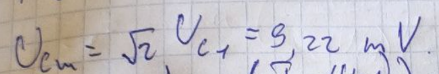 U_cm = √2 U_c1 = 9,22 mV.